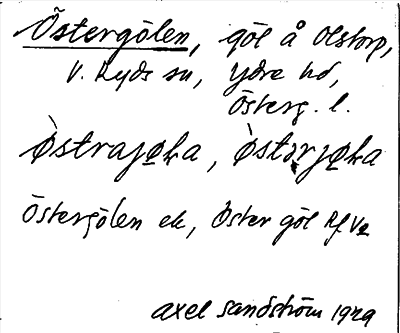 Östergölen, göl å Olstorp,
V. Ryds sn, Ydre hd,
Österg. l.
Östrajøka, Östərjøka
Östergölen ek, Öster göl Rf V2
Axel Sandström 1929